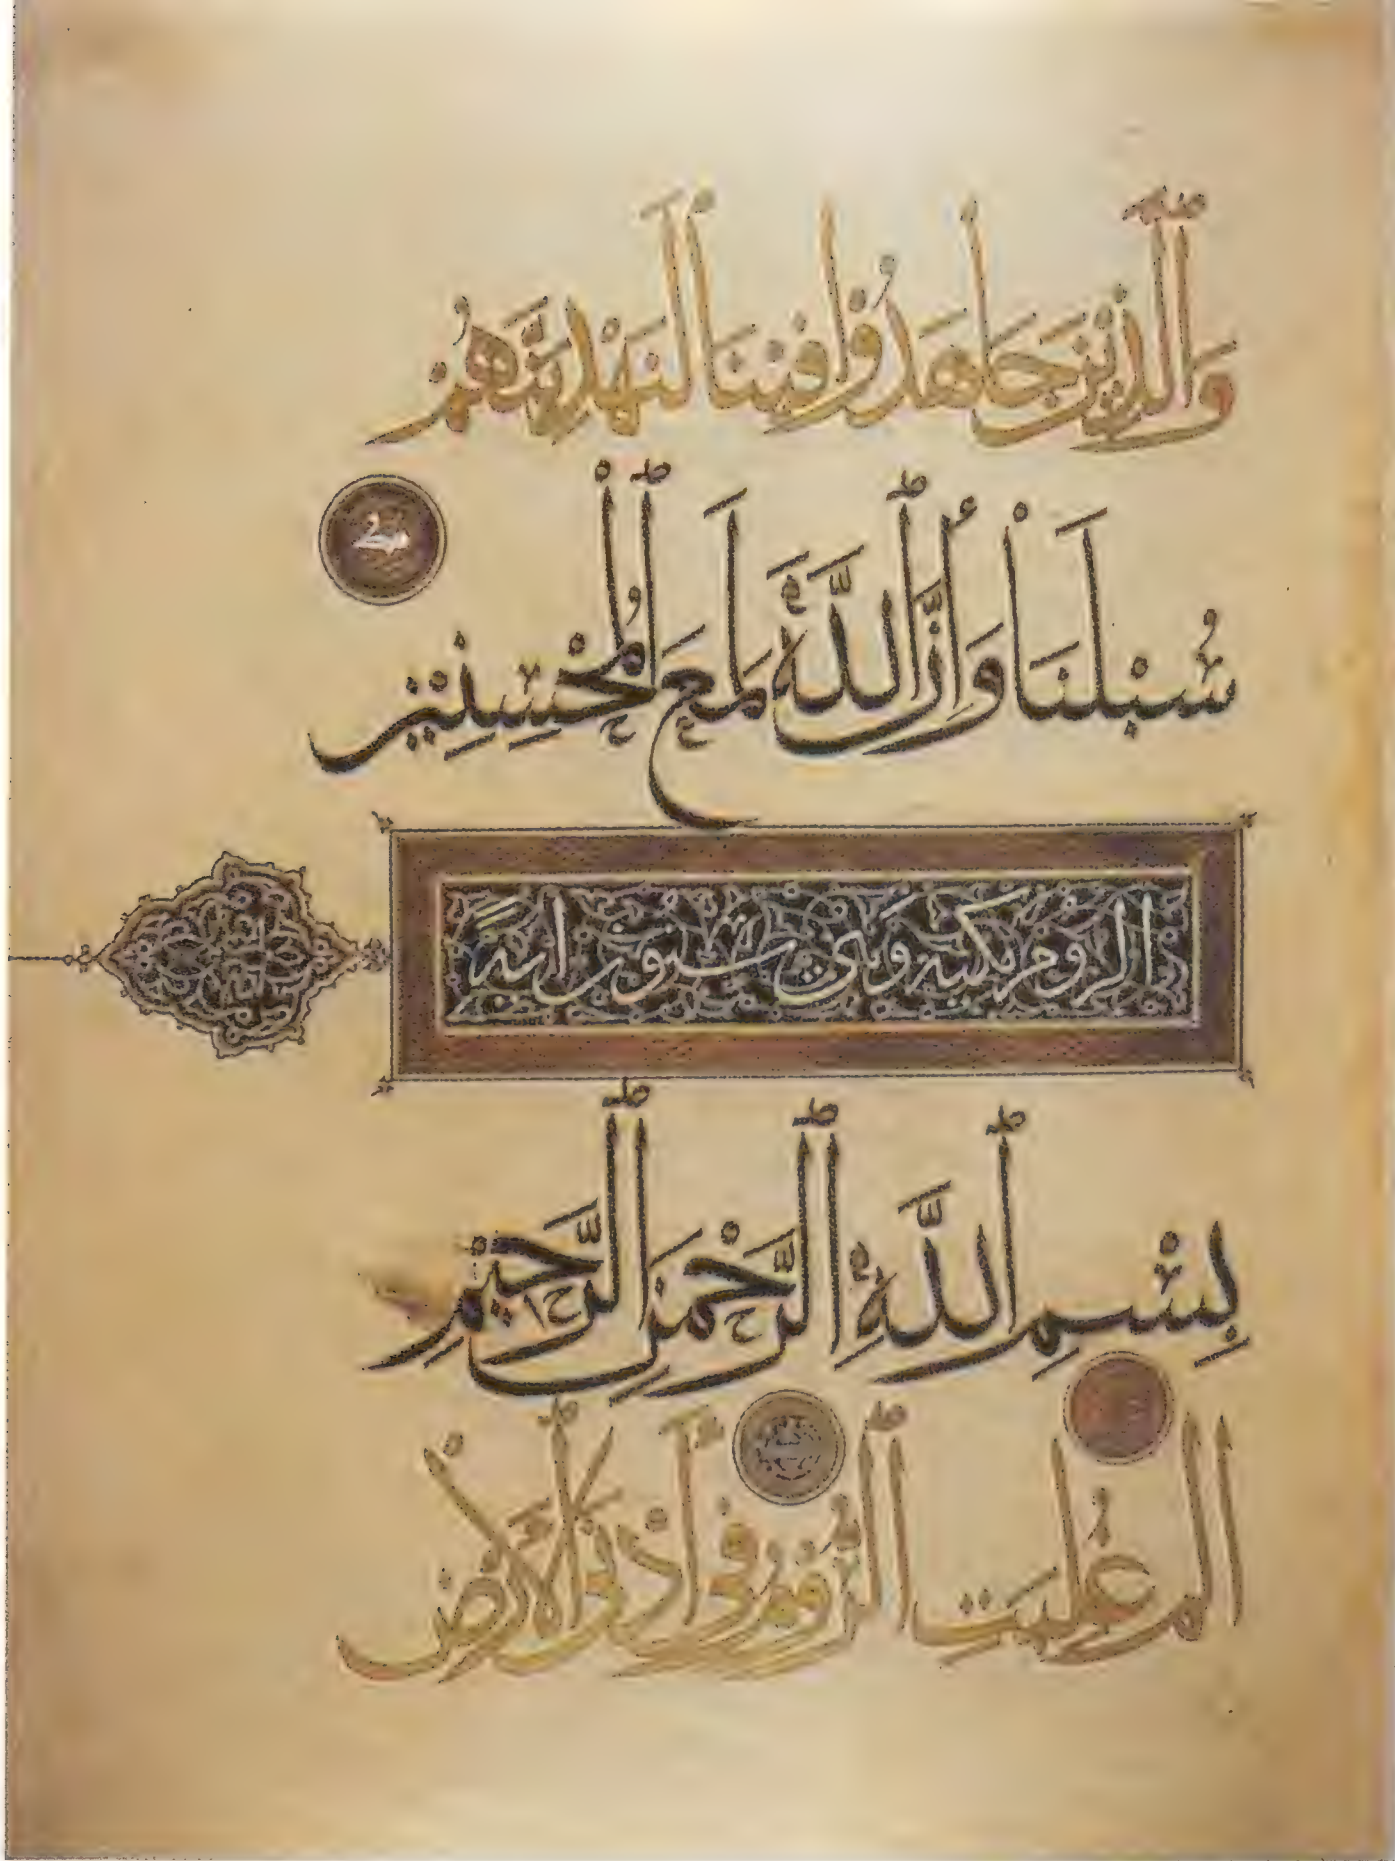 وَٱلَّذِينَ جَاهَدُوا فِينَا لَنَهْدِيَنَّهُمْ
سُبُلَنَا وَأَنَّ ٱللَّهَ لَمَعَ ٱلْمُحْسِنِينَ
الروم مكية وهي ستون اية
بِسْمِ ٱللَّهِ ٱلرَّحْمَنِ ٱلرَّحِيمِ
الم غُلِبَتِ ٱلرُّومُ فِي أَدْنَى ٱلْأَرْضِ